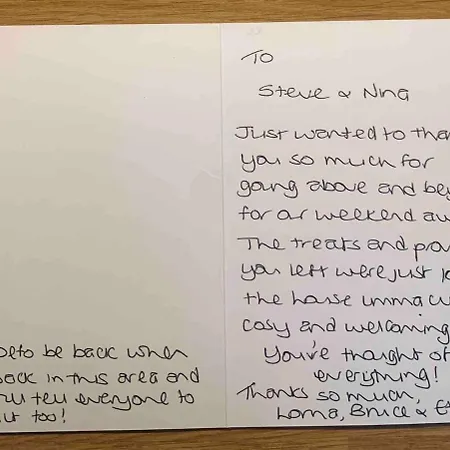 To
Steve & Nina
Just wanted to
you so much for
going above and
for our weekend
The treats and
you left were just
the house
cosy and welcoming
You've thought of
everything!
Thanks so much,
Lorna, Bruce &
to be back when
back in this area and
tell everyone to
too!